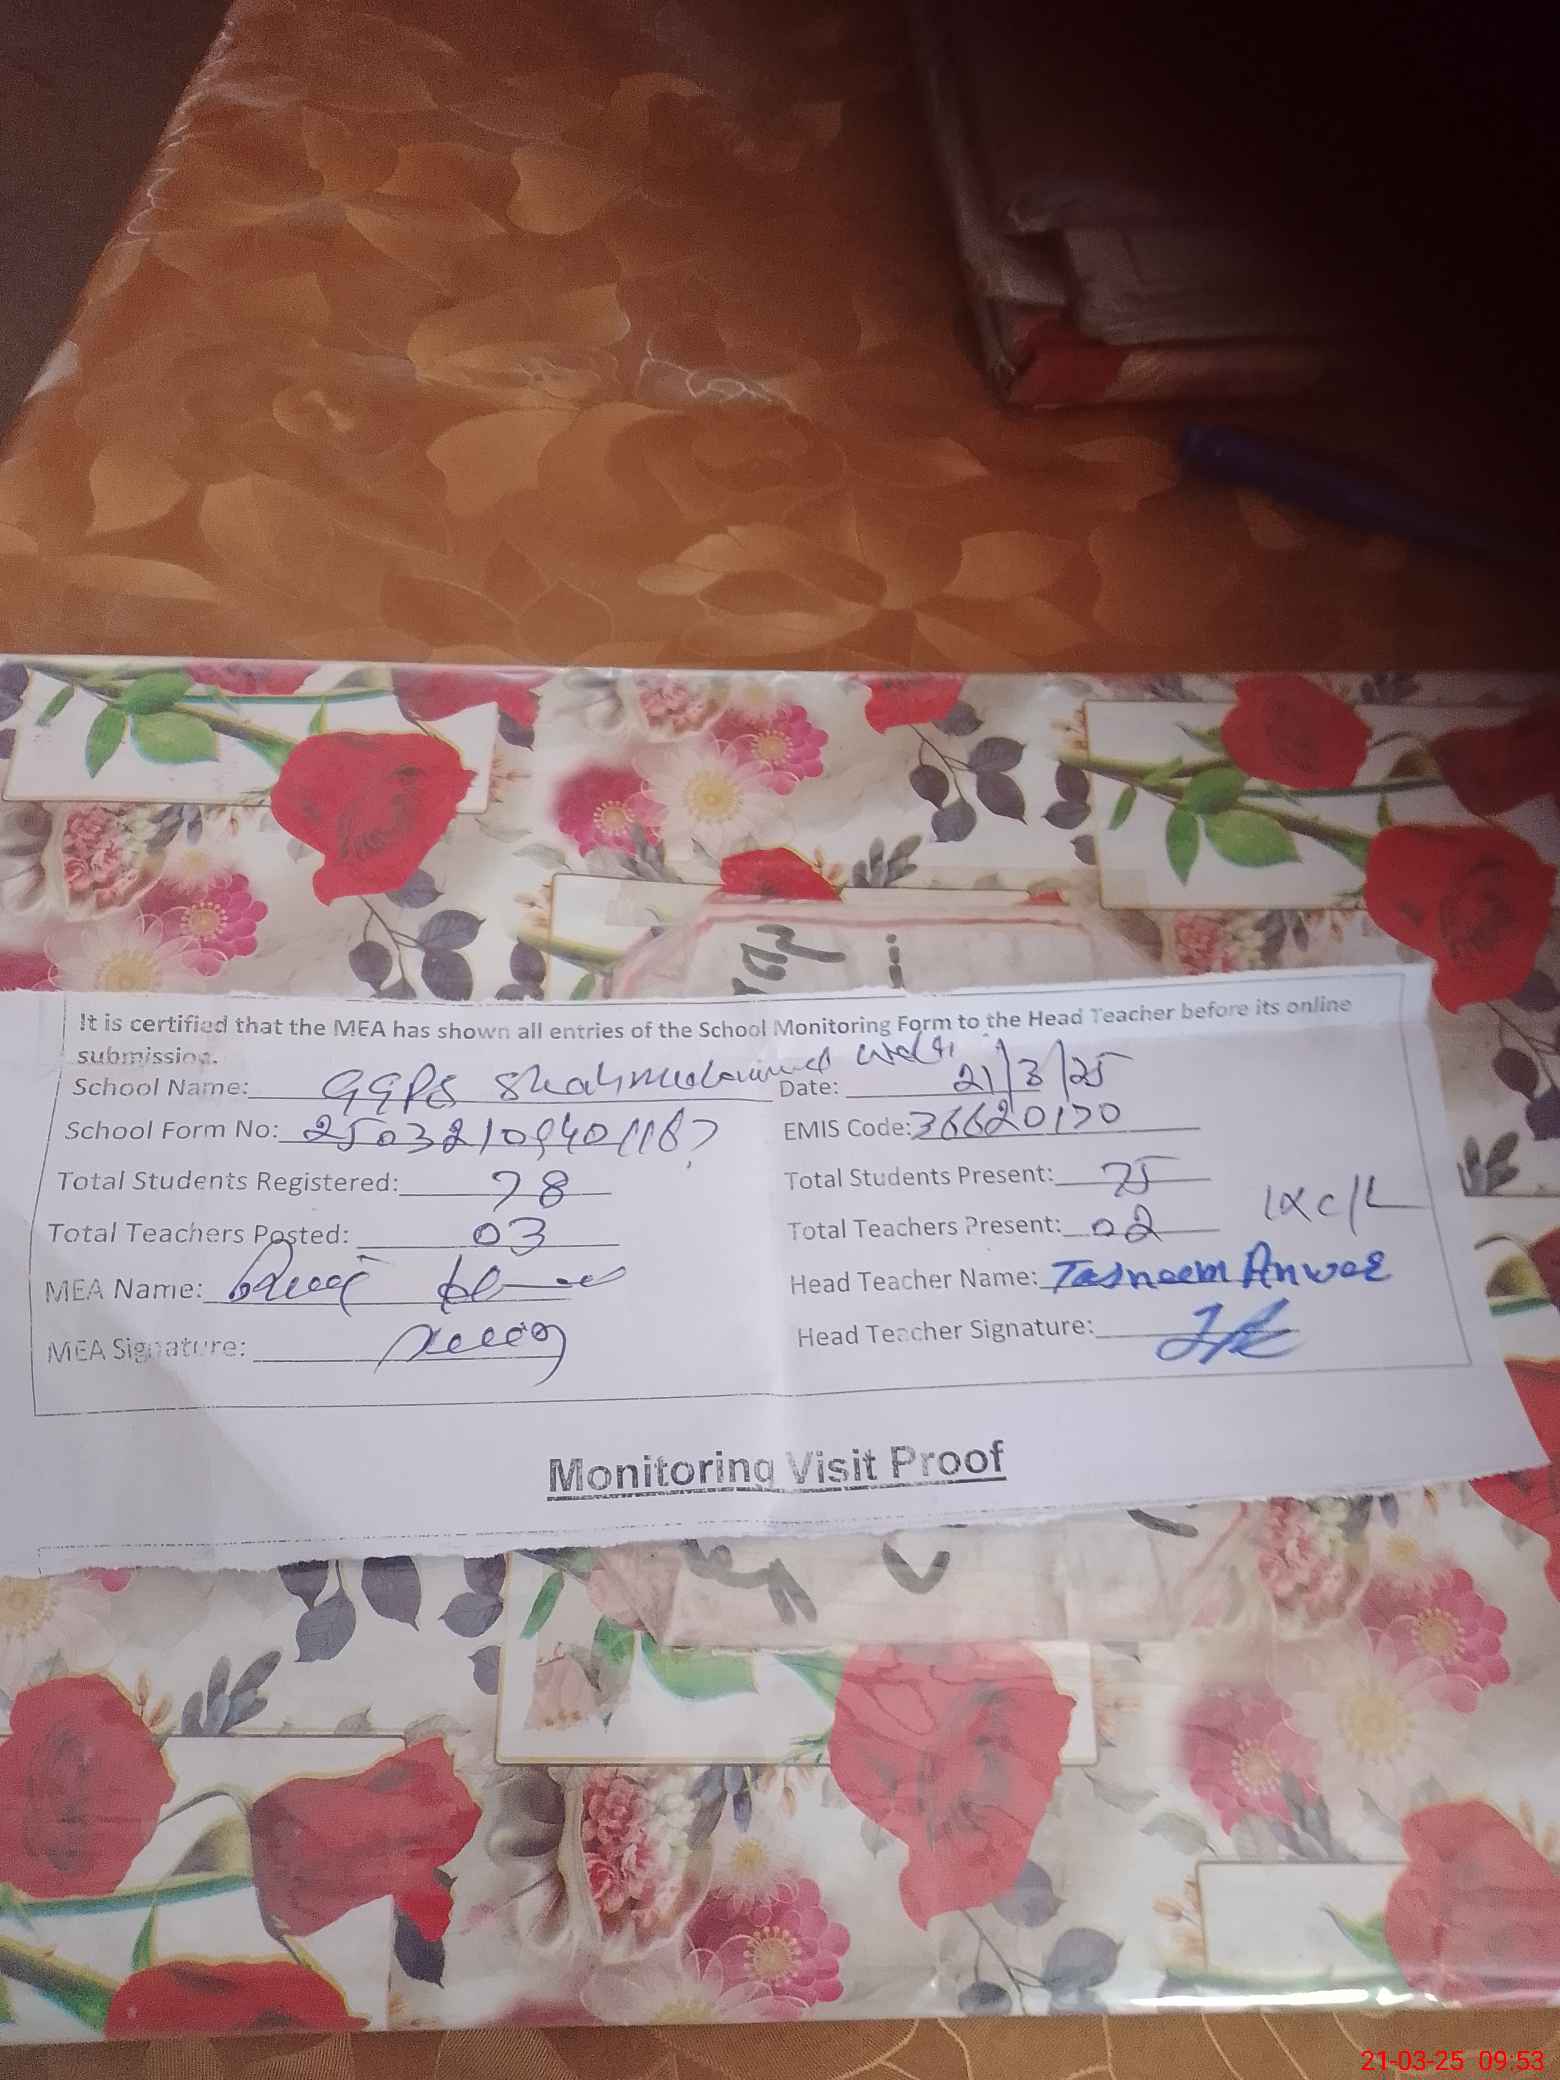 It is certified that the MEA has shown all entries of the School Monitoring Form to the Head Teacher before its online
submission.
School Name: GGPS Date: 21/3/25
School Form No: EMIS Code: 36620170
Total Students Registered: 78 Total Students Present: 75
Total Teachers Posted: 03 Total Teachers Present: 02 1xc/L
MEA Name: Head Teacher Name: Tasneem Anwar
MEA Signature: Head Teacher Signature:
Monitoring Visit Proof
21-03-25 09:53